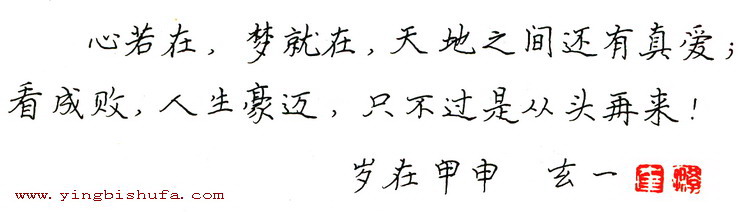 心若在，梦就在，天地之间还有真爱；
看成败，人生豪迈，只不过是从头再来！
岁在甲申 玄一
www.yingbishufa.com